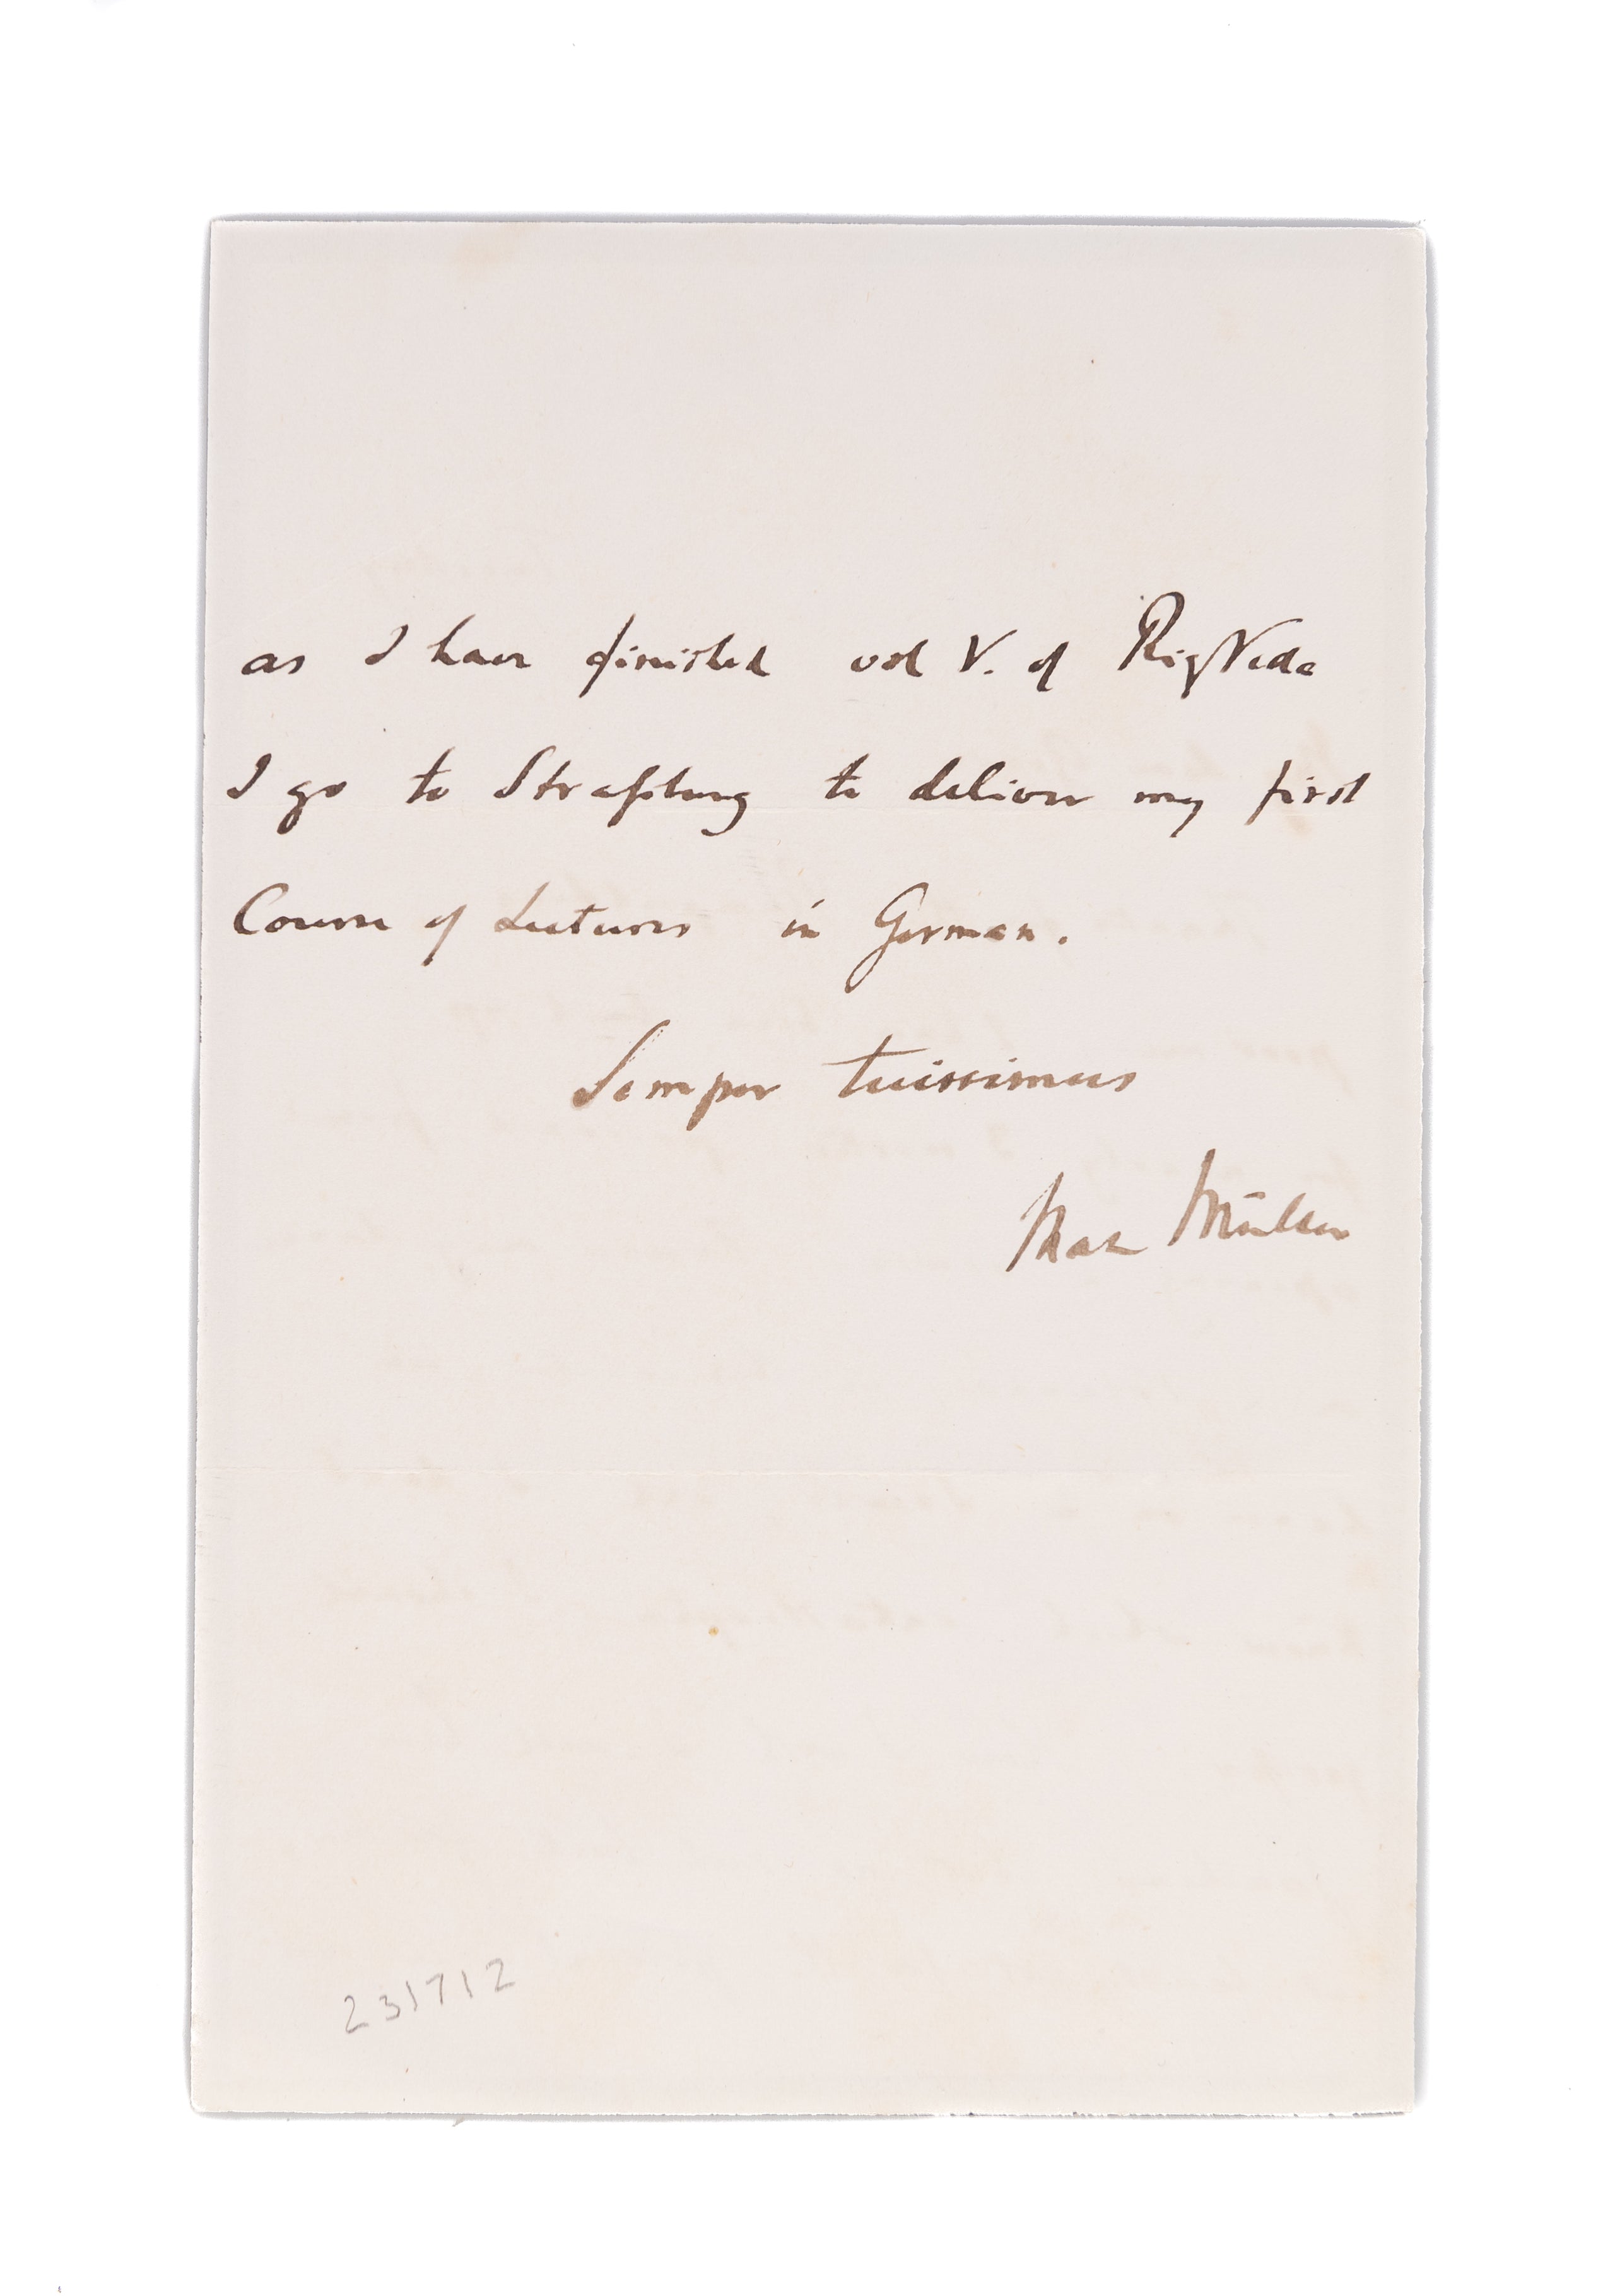 as I have finished vol V. of RigVeda
I go to Straßburg to deliver my first
Course of Lectures in German.
Semper tuissimus
Max Müller
231712